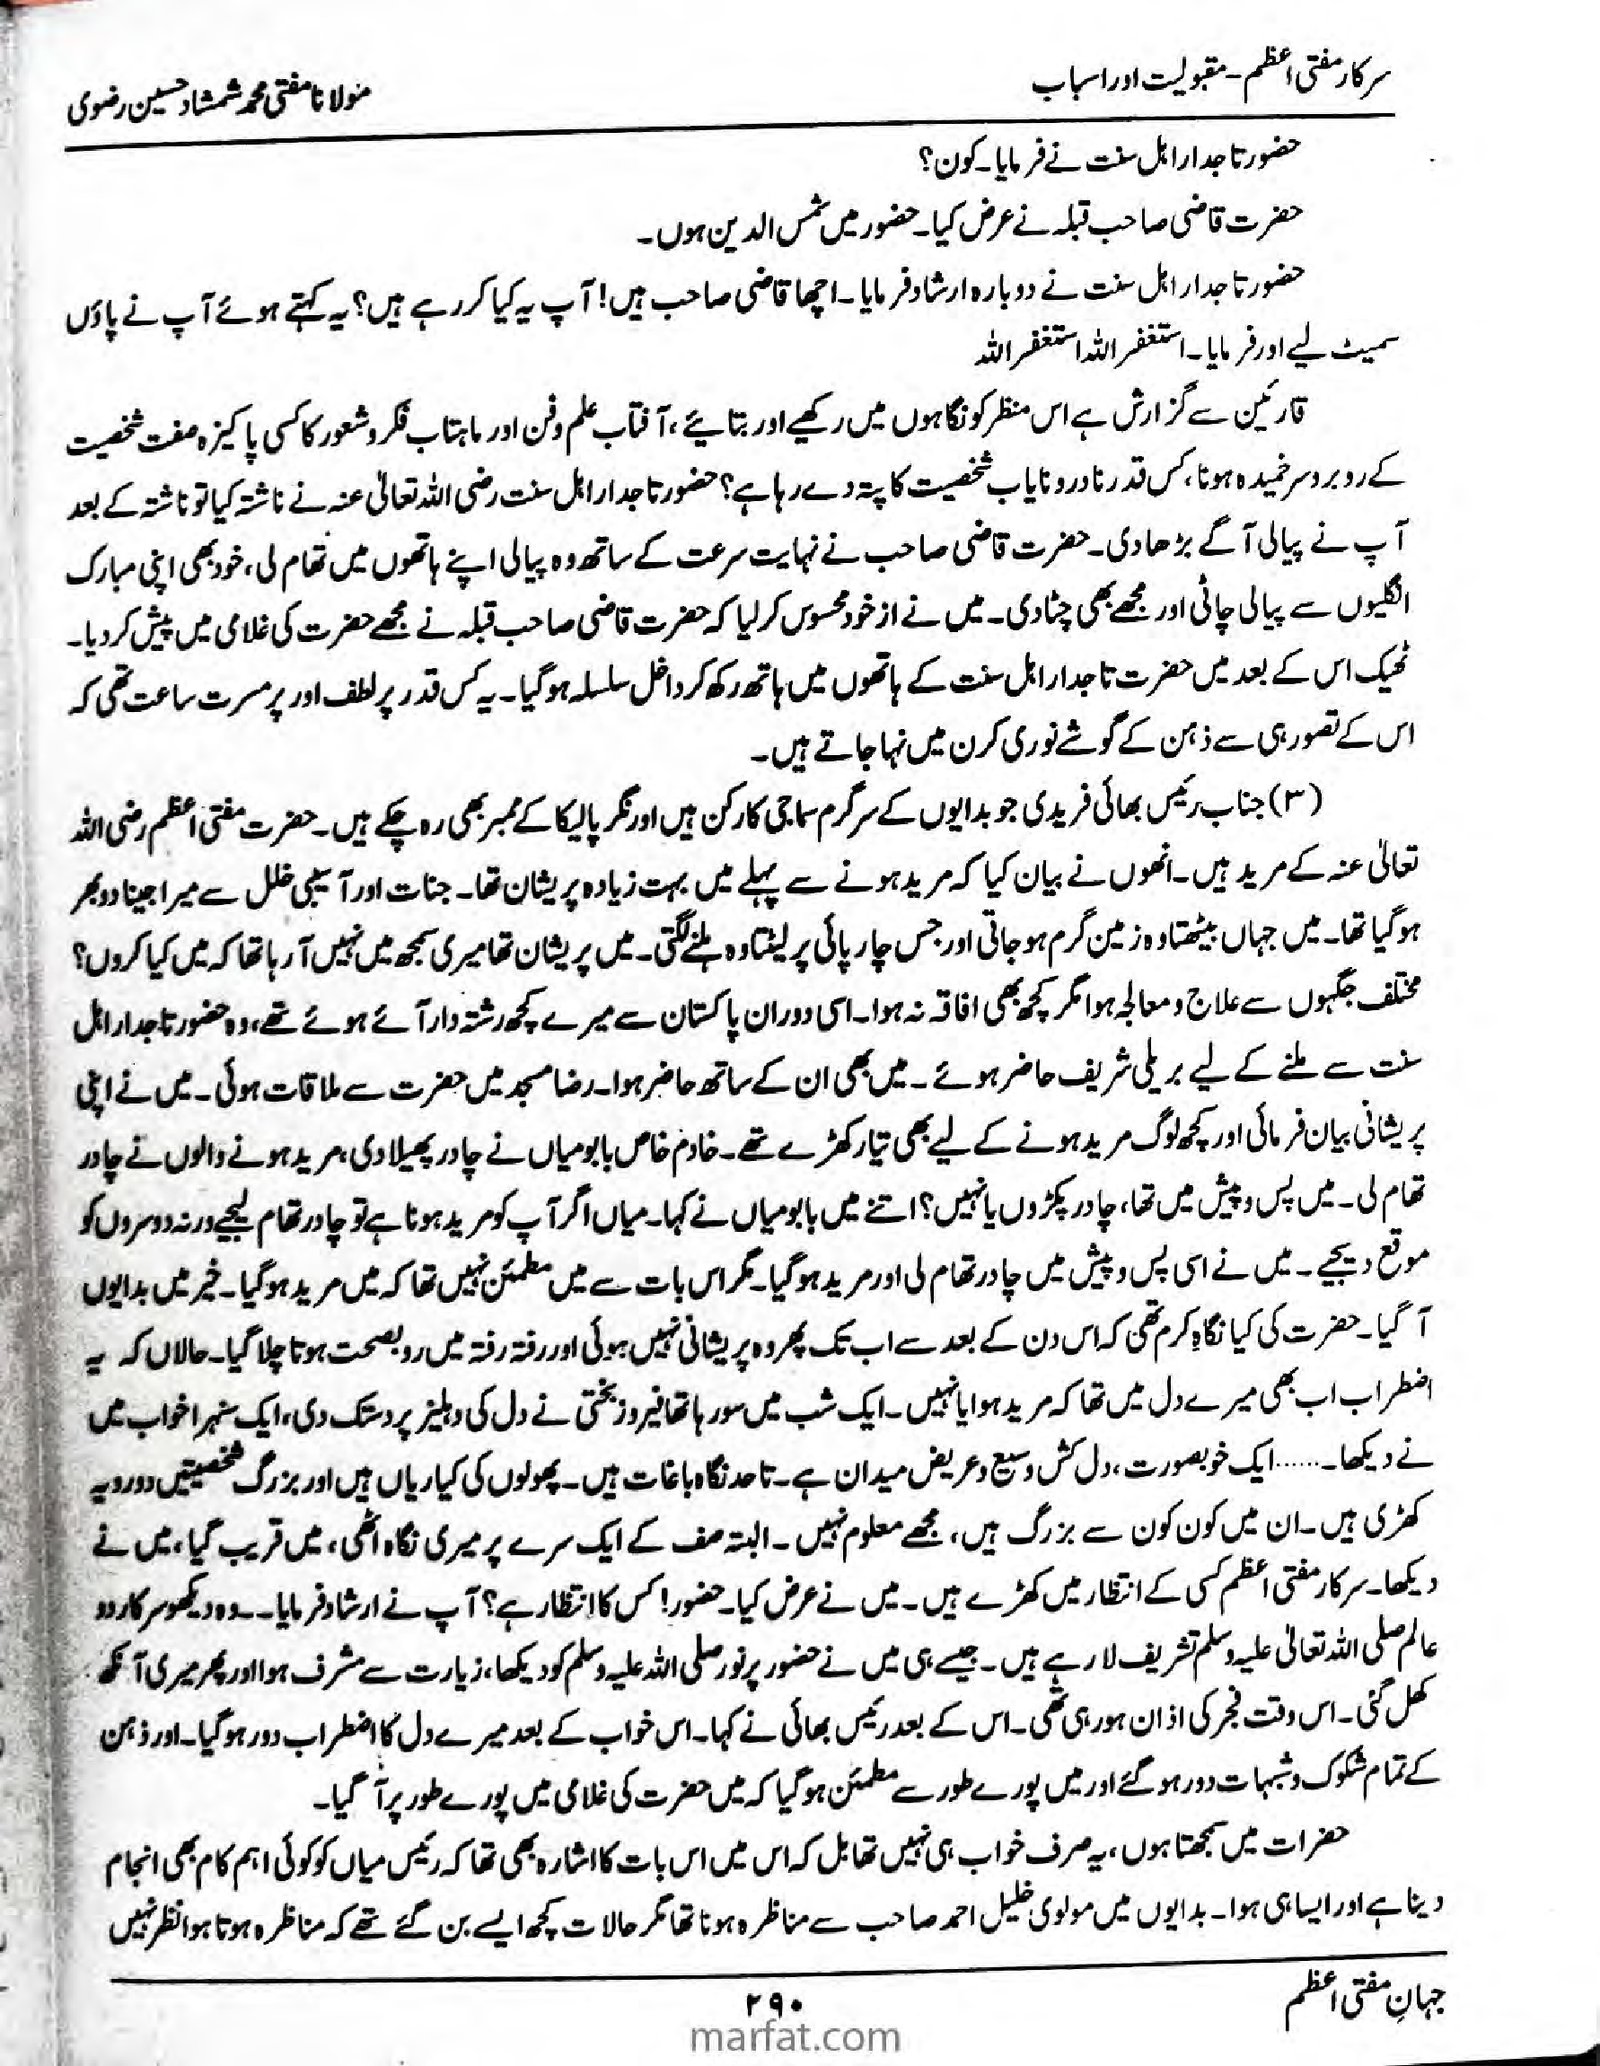 سرکار مفتی اعظم - مقبولیت اور اسباب
مولانا مفتی محمد شمشاد حسین رضوی
حضور تاجدار اہل سنت نے فرمایا۔ کون؟
حضرت قاضی صاحب قبلہ نے عرض کیا۔ حضور میں شمس الدین ہوں۔
حضور تاجدار اہل سنت نے دوبارہ ارشاد فرمایا۔ اچھا قاضی صاحب ہیں! آپ یہ کیا کر رہے ہیں؟ یہ کہتے ہوئے آپ نے پاؤں
سمیٹ لیے اور فرمایا۔ استغفر اللہ استغفر اللہ
قارئین سے گزارش ہے اس منظر کو نگاہوں میں رکھیے اور بتائیے، آفتاب علم و فن اور ماہتاب فکر و شعور کا کسی پاکیزہ صفت شخصیت
کے روبرو سر خمیدہ ہونا، کس قدر نادر و نایاب شخصیت کا پتہ دے رہا ہے؟ حضور تاجدار اہل سنت رضی اللہ تعالیٰ عنہ نے ناشتہ کیا تو ناشتہ کے بعد
آپ نے پیالی آگے بڑھا دی۔ حضرت قاضی صاحب نے نہایت سرعت کے ساتھ وہ پیالی اپنے ہاتھوں میں تھام لی، خود بھی اپنی مبارک
انگلیوں سے پیالی چاٹی اور مجھے بھی چٹا دی۔ میں نے از خود محسوس کر لیا کہ حضرت قاضی صاحب قبلہ نے مجھے حضرت کی غلامی میں پیش کر دیا۔
ٹھیک اس کے بعد میں حضرت تاجدار اہل سنت کے ہاتھوں میں ہاتھ رکھ کر داخل سلسلہ ہو گیا۔ یہ کس قدر پر لطف اور پر مسرت ساعت تھی کہ
اس کے تصور ہی سے ذہن کے گوشے نوری کرن میں نہا جاتے ہیں۔
(۳) جناب رئیس بھائی فریدی جو بدایوں کے سرگرم سماجی کارکن ہیں اور نگر پالیکا کے ممبر بھی رہ چکے ہیں۔ حضرت مفتی اعظم رضی اللہ
تعالیٰ عنہ کے مرید ہیں۔ انھوں نے بیان کیا کہ مرید ہونے سے پہلے میں بہت زیادہ پریشان تھا۔ جنات اور آسیبی خلل سے میرا جینا دوبھر
ہو گیا تھا۔ میں جہاں بیٹھتا وہ زمین گرم ہو جاتی اور جس چارپائی پر لیٹتا وہ ہلنے لگتی۔ میں پریشان تھا میری سمجھ میں نہیں آ رہا تھا کہ میں کیا کروں؟
مختلف جگہوں سے علاج و معالجہ ہوا مگر کچھ بھی افاقہ نہ ہوا۔ اسی دوران پاکستان سے میرے کچھ رشتہ دار آئے ہوئے تھے، وہ حضور تاجدار اہل
سنت سے ملنے کے لیے بریلی شریف حاضر ہوئے۔ میں بھی ان کے ساتھ حاضر ہوا۔ رضا مسجد میں حضرت سے ملاقات ہوئی۔ میں نے اپنی
پریشانی بیان فرمائی اور کچھ لوگ مرید ہونے کے لیے بھی تیار کھڑے تھے۔ خادم خاص بابو میاں نے چادر پھیلا دی، مرید ہونے والوں نے چادر
تھام لی۔ میں پس و پیش میں تھا، چادر پکڑوں یا نہیں؟ اتنے میں بابو میاں نے کہا۔ میاں اگر آپ کو مرید ہونا ہے تو چادر تھام لیجیے ورنہ دوسروں کو
موقع دیجیے۔ میں نے اسی پس و پیش میں چادر تھام لی اور مرید ہو گیا۔ مگر اس بات سے میں مطمئن نہیں تھا کہ میں مرید ہو گیا۔ خیر میں بدایوں
آ گیا۔ حضرت کی کیا نگاہِ کرم تھی کہ اس دن کے بعد سے اب تک پھر وہ پریشانی نہیں ہوئی اور رفتہ رفتہ میں رو بصحت ہوتا چلا گیا۔ حالاں کہ یہ
اضطراب اب بھی میرے دل میں تھا کہ مرید ہوا یا نہیں۔ ایک شب میں سو رہا تھا فیروز بختی نے دل کی دہلیز پر دستک دی، ایک سنہرا خواب میں
نے دیکھا۔...... ایک خوبصورت، دل کش وسیع و عریض میدان ہے۔ تاحد نگاہ باغات ہیں۔ پھولوں کی کیاریاں ہیں اور بزرگ شخصیتیں دورویہ
کھڑی ہیں۔ ان میں کون کون سے بزرگ ہیں، مجھے معلوم نہیں۔ البتہ صف کے ایک سرے پر میری نگاہ اٹھی، میں قریب گیا، میں نے
دیکھا۔ سرکار مفتی اعظم کسی کے انتظار میں کھڑے ہیں۔ میں نے عرض کیا۔ حضور! کس کا انتظار ہے؟ آپ نے ارشاد فرمایا۔۔ وہ دیکھو سرکار دو
عالم صلی اللہ تعالیٰ علیہ وسلم تشریف لا رہے ہیں۔ جیسے ہی میں نے حضور پر نور صلی اللہ علیہ وسلم کو دیکھا، زیارت سے مشرف ہوا اور پھر میری آنکھ
کھل گئی۔ اس وقت فجر کی اذان ہو رہی تھی۔ اس کے بعد رئیس بھائی نے کہا۔ اس خواب کے بعد میرے دل کا اضطراب دور ہو گیا۔ اور ذہن
کے تمام شکوک و شبہات دور ہو گئے اور میں پورے طور سے مطمئن ہو گیا کہ میں حضرت کی غلامی میں پورے طور پر آ گیا۔
حضرات میں سمجھتا ہوں، یہ صرف خواب ہی نہیں تھا بل کہ اس میں اس بات کا اشارہ بھی تھا کہ رئیس میاں کو کوئی اہم کام بھی انجام
دینا ہے اور ایسا ہی ہوا۔ بدایوں میں مولوی خلیل احمد صاحب سے مناظرہ ہونا تھا مگر حالات کچھ ایسے بن گئے تھے کہ مناظرہ ہوتا ہوا نظر نہیں
جہانِ مفتی اعظم
۲۹۰
marfat.com